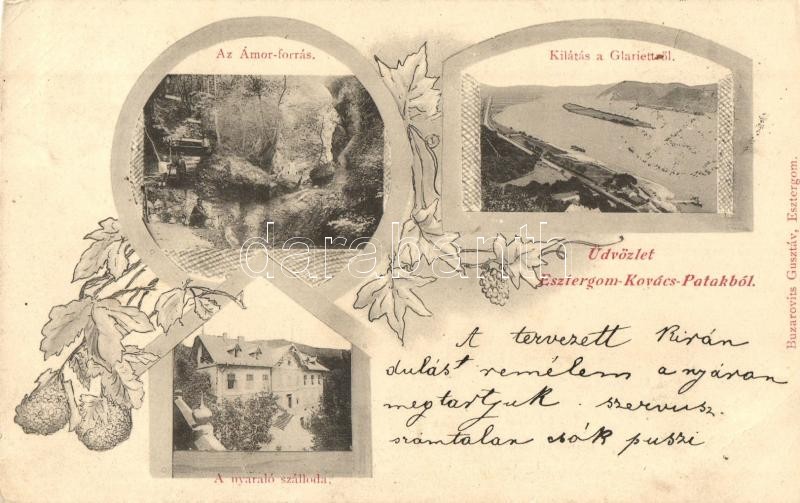 Az Ámor-forrás.
Kilátás a Glariettről.
Üdvözlet
Esztergom-Kovács-Patakból.
Buzarovits Gusztáv, Esztergom.
A tervezett kirán
dulást remélem a nyáron
megtartjuk. szervusz.
számtalan csók puszi
A nyaraló szálloda.
darabanth